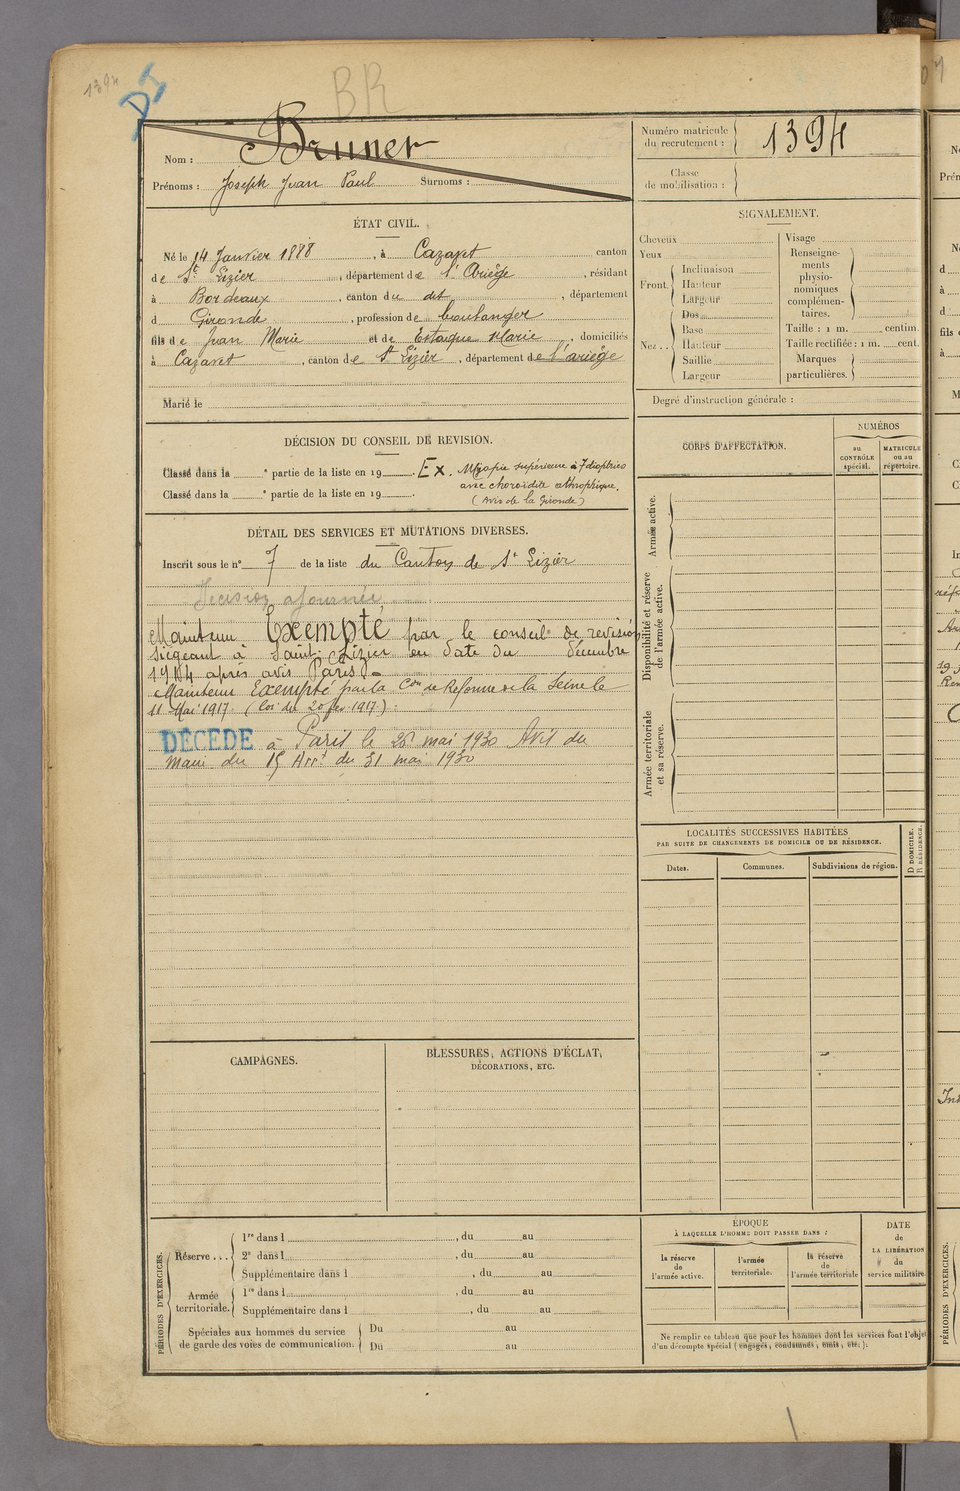 1394
BR
Nom : Bruner
Prénoms : Joseph Jean Paul Surnoms :
Numéro matricule du recrutement : 1394
Classe de mobilisation :
ÉTAT CIVIL.
Né le 14 Janvier 1888, à Cazaret canton
de St Lizier, département de l'Ariège, résidant
à Bordeaux, canton du dit, département
d Gironde, profession de boulanger
fils de Jean Marie et de Estaque Marie, domiciliés
à Cazaret, canton de St Lizier, département de l'ariège
Marié le
SIGNALEMENT.
Cheveux
Yeux
Front. Inclinaison
Hauteur
Largeur
Nez.. Dos
Base
Hauteur
Saillie
Largeur
Visage
Renseignements physionomiques complémentaires.
Taille : 1 m. centim.
Taille rectifiée : 1 m. cent.
Marques particulières.
Degré d'instruction générale :
DÉCISION DU CONSEIL DE REVISION.
Classé dans la e partie de la liste en 19 . Ex. Myopie supérieure à 7 dioptries
avec choroïdite athrophique.
Classé dans la e partie de la liste en 19 .
(Avis de la Gironde)
DÉTAIL DES SERVICES ET MUTATIONS DIVERSES.
Inscrit sous le n° 7 de la liste du Canton de St Lizier
Décision ajournée
Maintenu Exempté par le conseil de revision
siégeant à Saint-Lizier en date du décembre
1914 après avis Paris
Maintenu Exempté par la Con de Réforme de la Seine le
11 Mai 1917 (loi du 20 fév 1917).
DÉCÉDÉ à Paris le 26 mai 1930 Avis du
Maire du 15 Arrt du 31 mai 1930
CORPS D'AFFECTATION.
NUMÉROS
au CONTRÔLE spécial.
MATRICULE ou au répertoire.
Armée active.
Disponibilité et réserve de l'armée active.
Armée territoriale et sa réserve.
LOCALITÉS SUCCESSIVES HABITÉES
PAR SUITE DE CHANGEMENTS DE DOMICILE OU DE RÉSIDENCE.
Dates.
Communes.
Subdivisions de région.
D DOMICILE.
R RÉSIDENCE.
CAMPAGNES.
BLESSURES, ACTIONS D'ÉCLAT,
DÉCORATIONS, ETC.
PÉRIODES D'EXERCICES.
Réserve... 1re dans l , du au
2e dans l , du au
Supplémentaire dans l , du au
Armée territoriale. 1re dans l , du au
Supplémentaire dans l , du au
Spéciales aux hommes du service de garde des voies de communication. Du au
Du au
ÉPOQUE
À LAQUELLE L'HOMME DOIT PASSER DANS :
la réserve de l'armée active.
l'armée territoriale.
la réserve de l'armée territoriale
DATE de LA LIBÉRATION du service militaire.
Ne remplir ce tableau que pour les hommes dont les services font l'objet
d'un décompte spécial (engagés, condamnés, omis, etc.).
PÉRIODES D'EXERCICES.